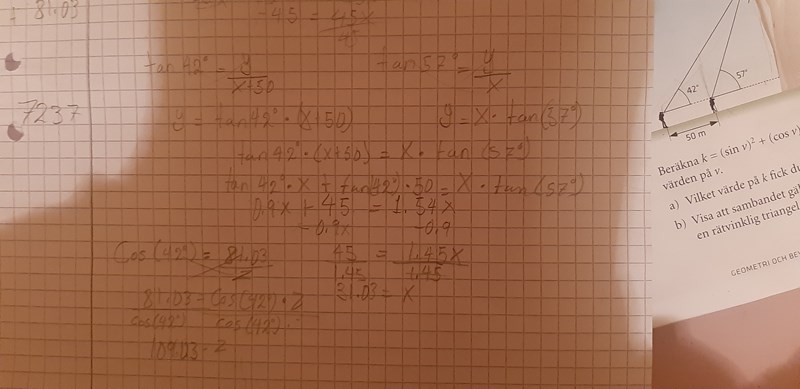 81.03
-45 = 45x
45
tan 42° = y
x+50
tan 57° = y
x
7237
y = tan 42° · (x+50)
y = x · tan (57°)
tan 42° · (x+50) = x · tan (57°)
tan 42° · x + tan(42°) · 50 = x · tan (57°)
0.9x + 45 = 1.54x
-0.9x -0.9
Cos (42°) = 81.03
z
45 = 1.45x
1.45 1.45
81.03 = cos(42°) · z
31.03 = x
cos(42°) cos(42°)
109.03 = z
42°
57°
50 m
Beräkna k = (sin v)² + (cos v)
värden på v.
a) Vilket värde på k fick du
b) Visa att sambandet gäl
en rätvinklig triangel
GEOMETRI OCH BEV